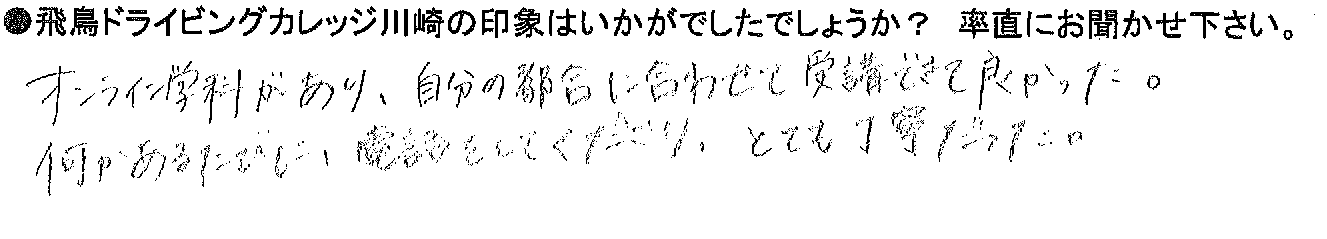 ●飛鳥ドライビングカレッジ川崎の印象はいかがでしたでしょうか？ 率直にお聞かせ下さい。
オンライン学科があり、自分の都合に合わせて受講できて良かった。
何かあるたびに、電話をしてくださり、とても丁寧だった。